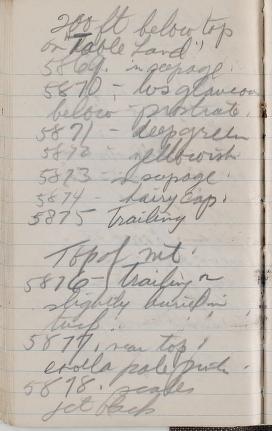 200 ft below top
on Table Land!
5869. in seepage.
5870 - lvs glaucous
below - prostrate.
5871 - deep green
5872 - yellowish
5873 - in seepage.
5874 - hairy cap.
5875 Trailing
Top of mt.
5876 - trailing or
slightly buried in
turf.
5877. near top!
corolla pale pink.
5878. scales
jet black